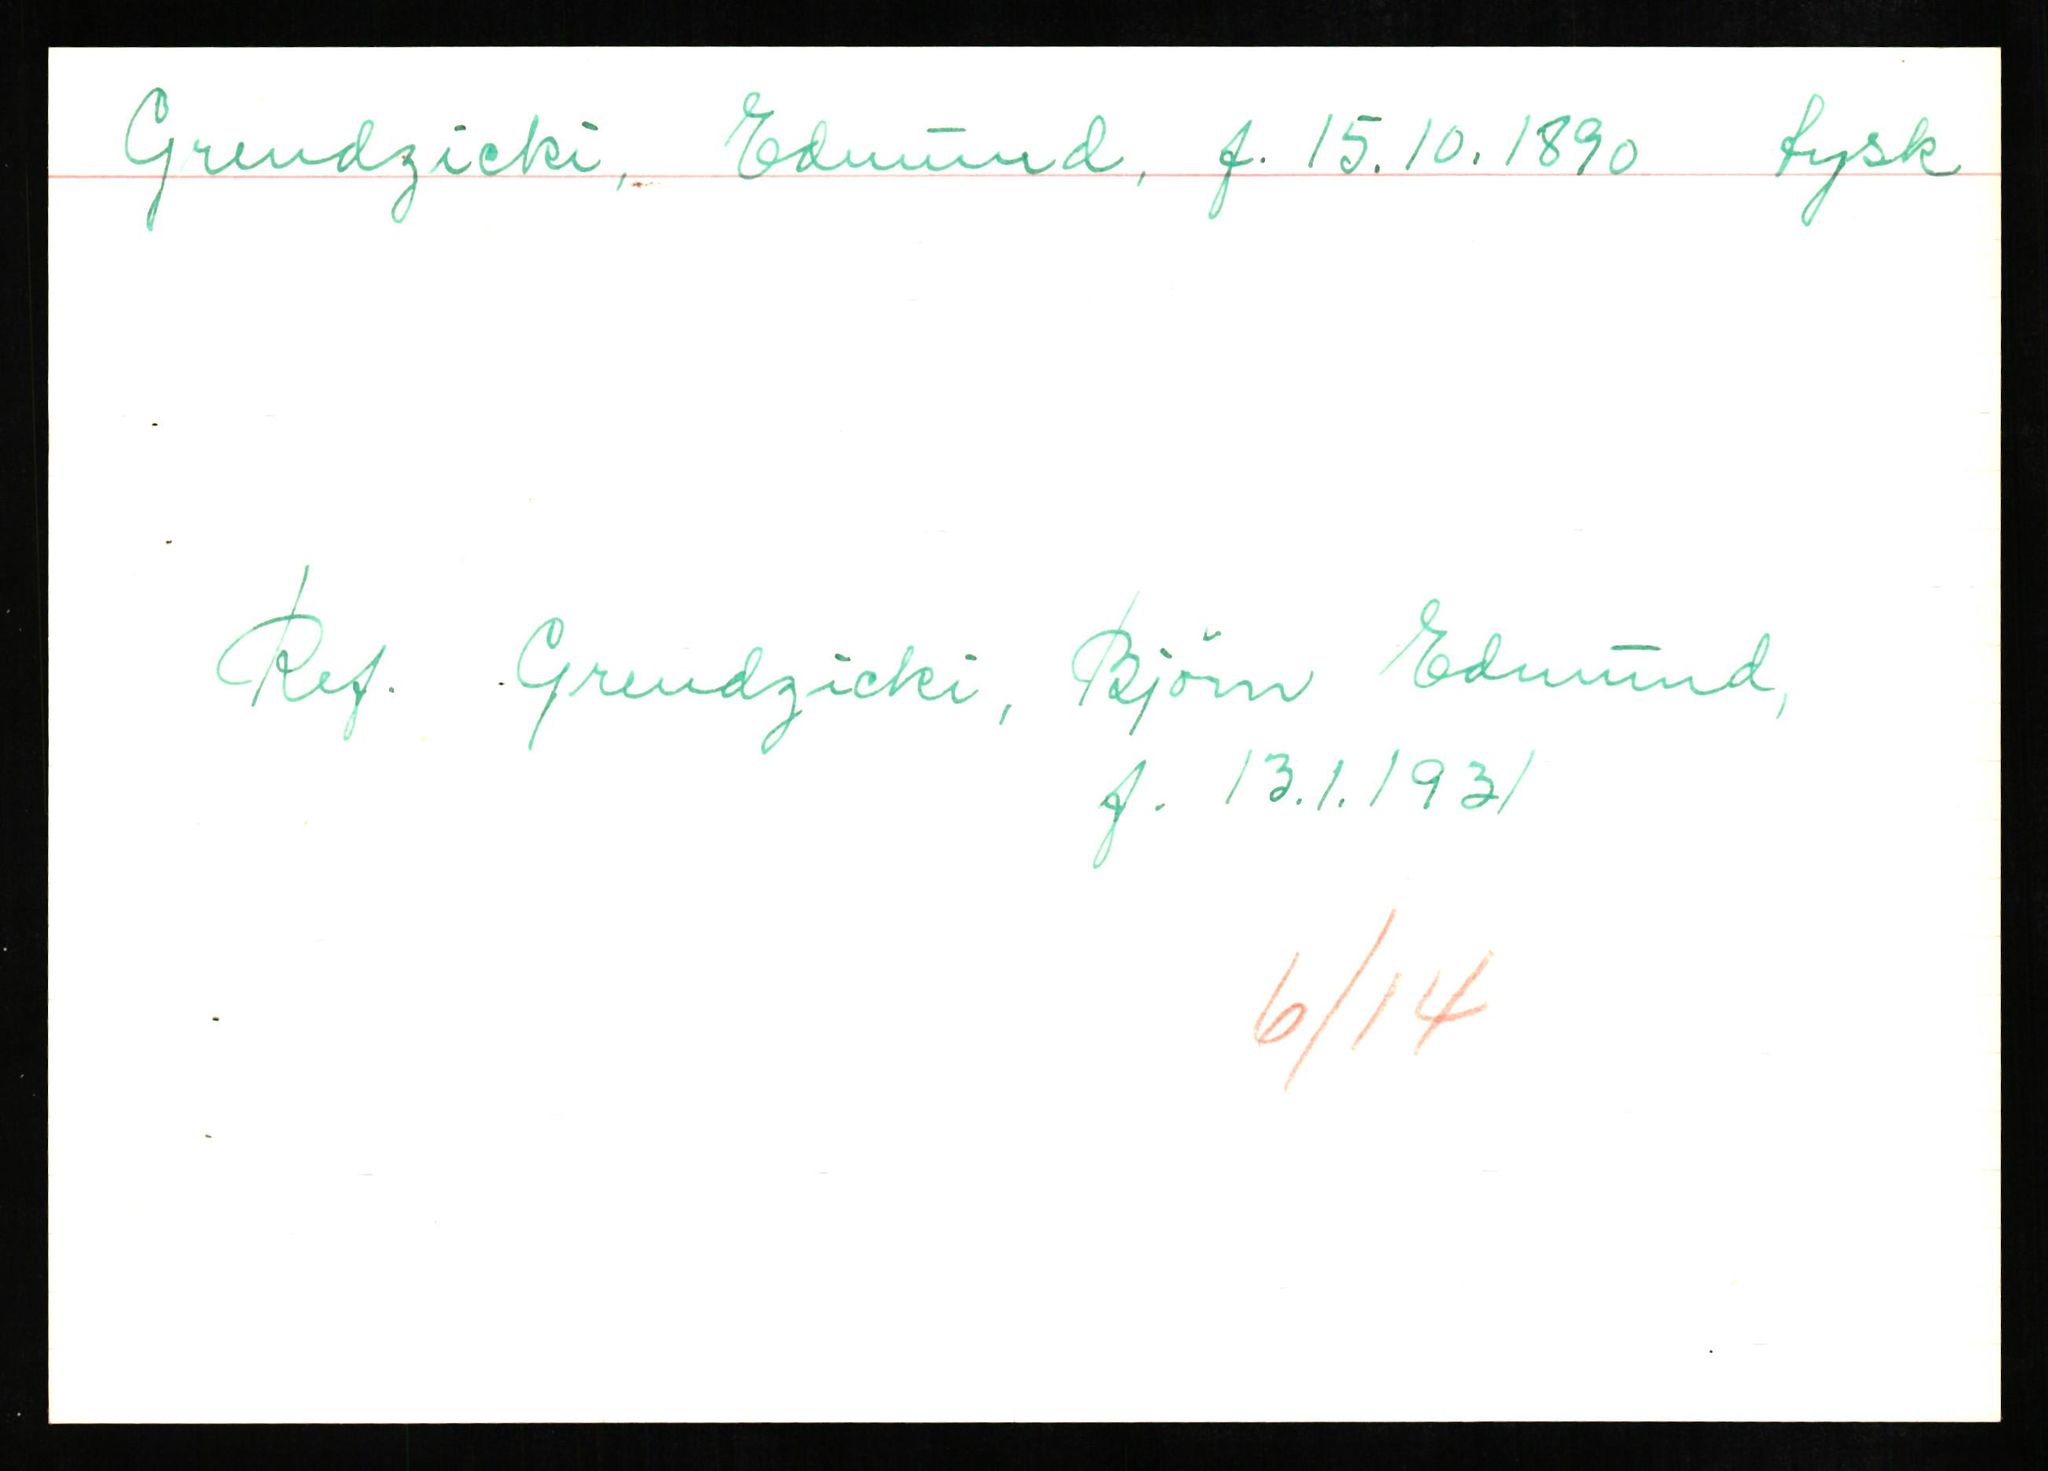 Grendzicki, Edmund, f. 15.10.1890 tysk
Ref. Grendzicki, Björn Edmund,
f. 13.1.1931
6/14